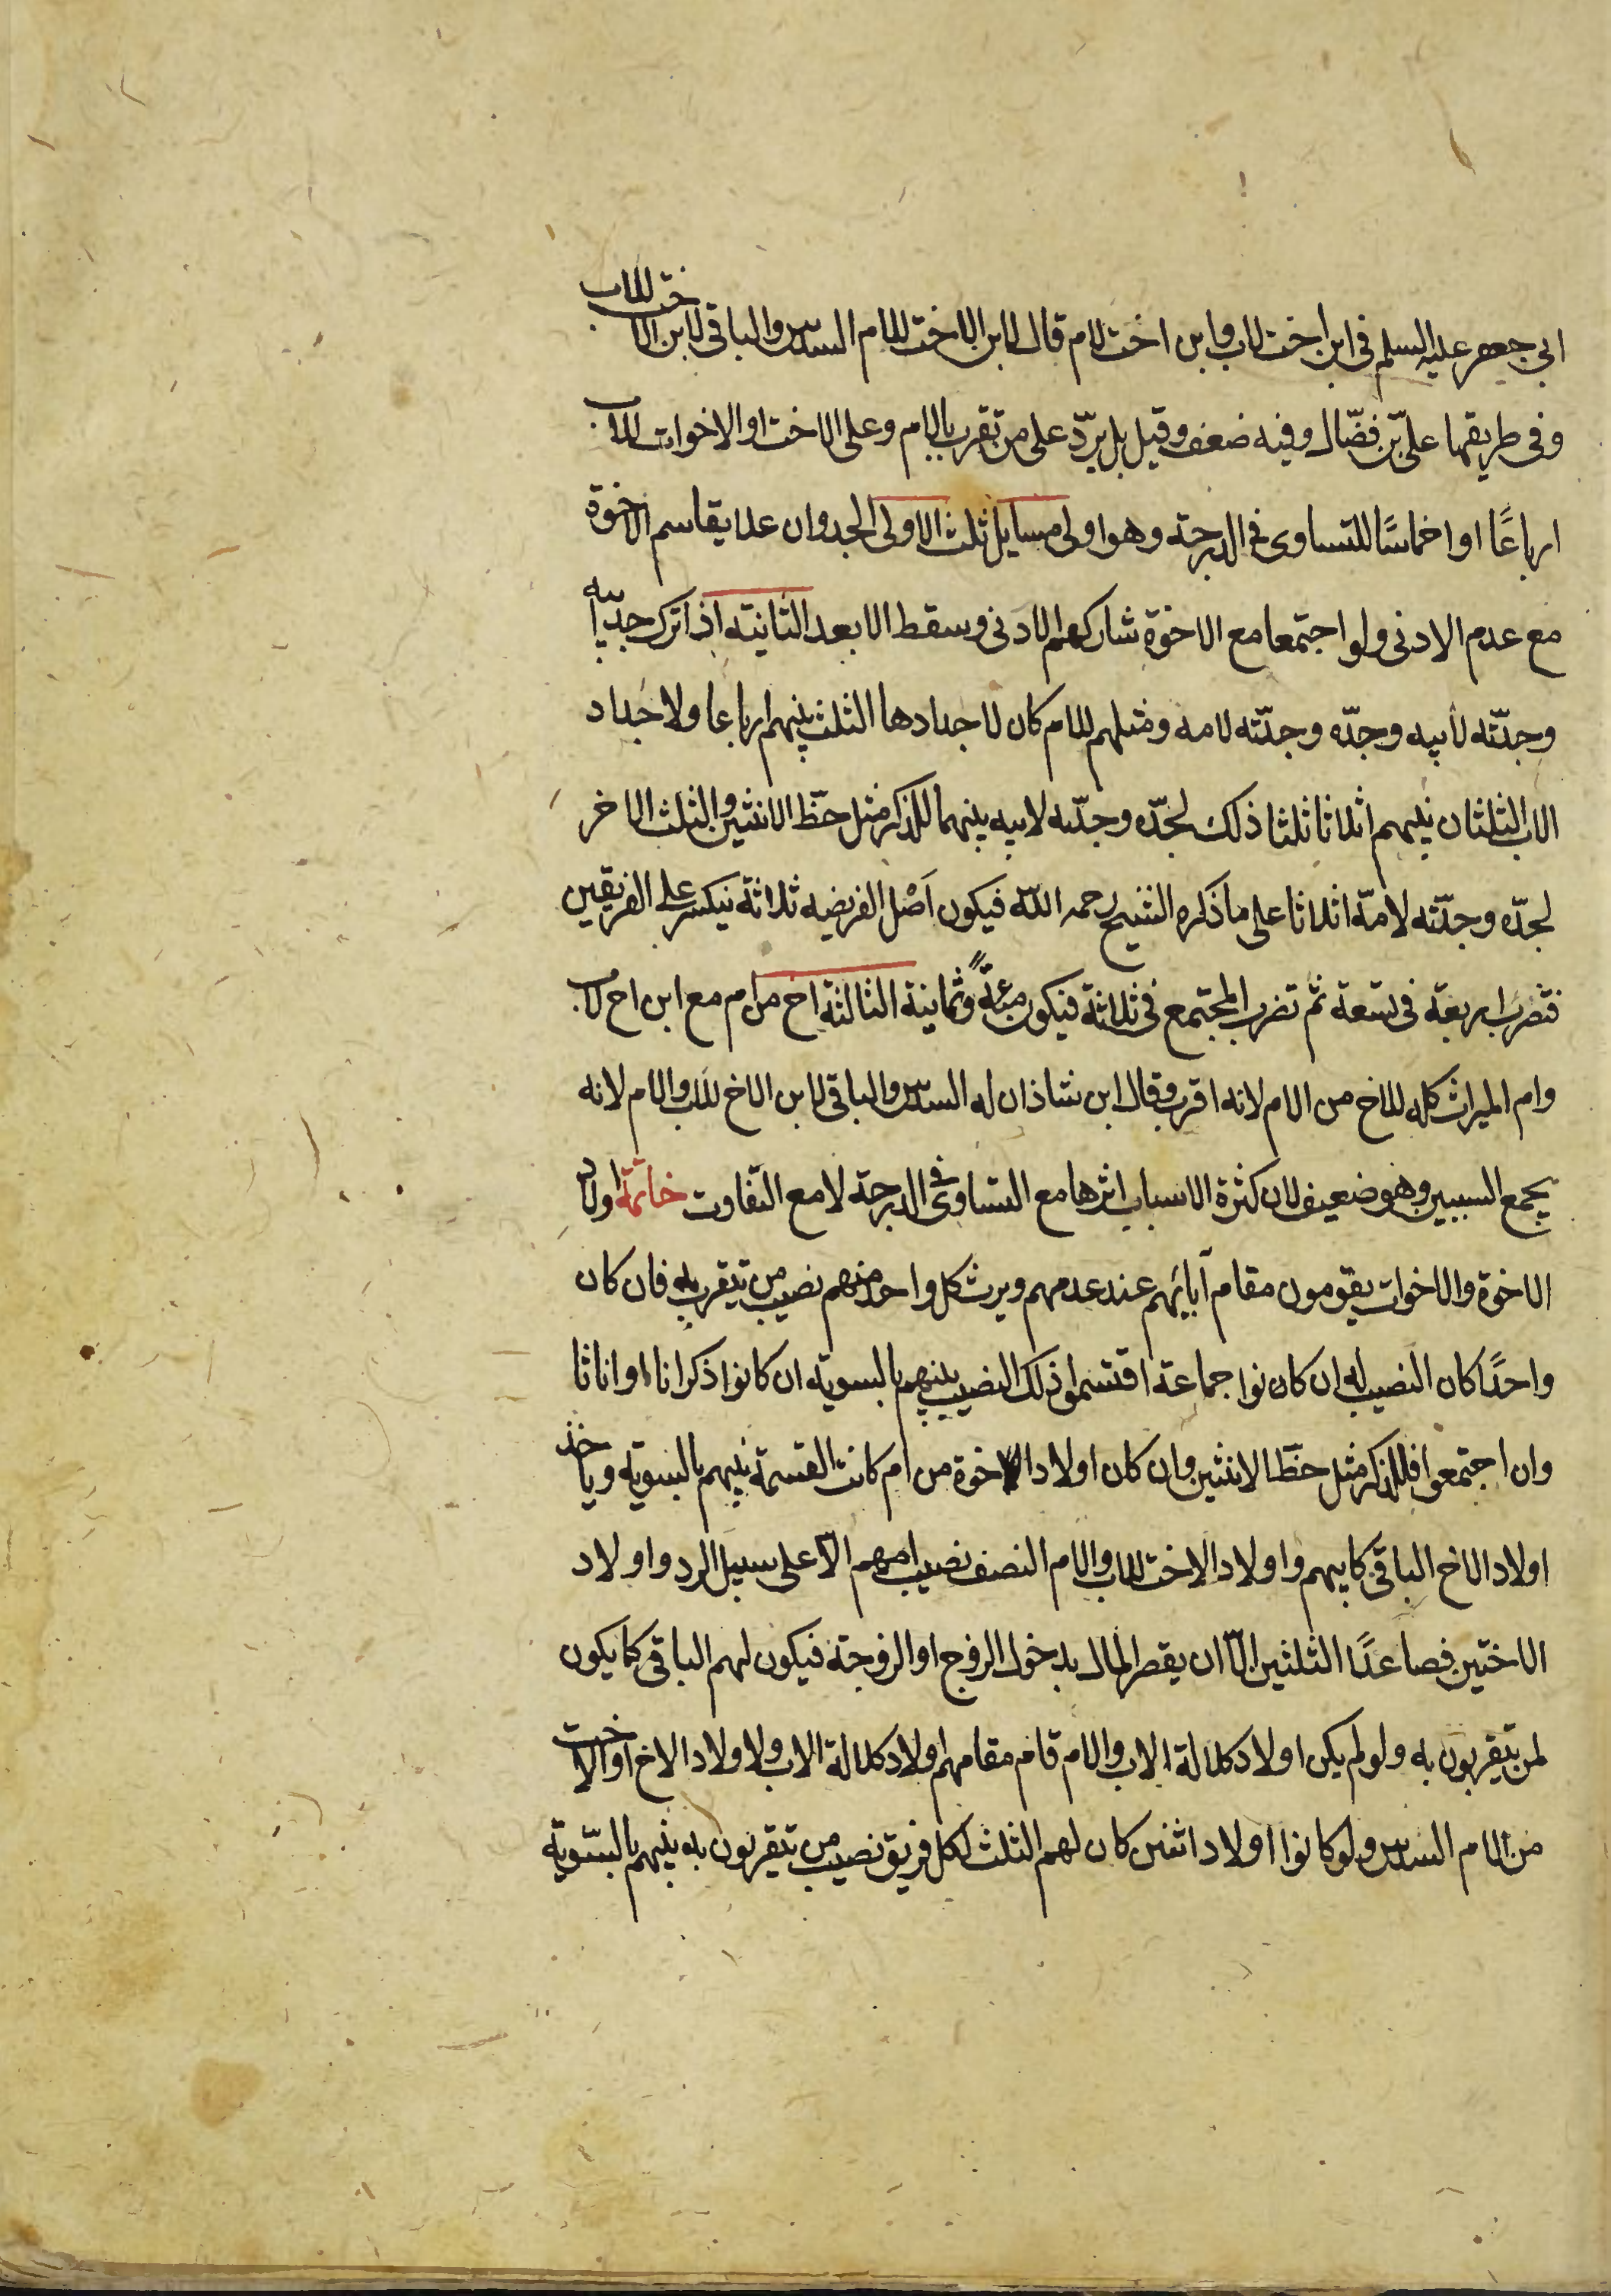 ابي جعفر عليه السلم في ابن اخت لاب وابن اخت لام قال لابن الاخت للام السدس والباقي لابن الاخت للاب
وفي طريقها علي بن فضّال وفيه ضعف وقيل بل يردّ على من تقرب بالام وعلى الاخت او الاخوات للاب
ارباعًا او اخماسًا للتساوى في الدرجة وهو اولى مسايل ثلث الاولى الجد وان علا يقاسم الاخوة
مع عدم الادنى ولو اجتمعا مع الاخوة شاركهم الادنى وسقط الابعد الثانية اذا ترك جدّ ابيه
وجدّته لأبيه وجدّه وجدّته لامه ومثلهم للام كان لاجدادها الثلث بينهم ارباعا ولاجداد
الاب الثلثان بينهم اثلاثا ثلثا ذلك لجدّه وجدّته لابيه بينهما للذكر مثل حظّ الانثيين والثلث الاخر
لجدّه وجدّته لامّه اثلاثا على ما ذكره الشيخ رحمه اللّه فيكون اصْل الفريضه ثلاثة ينكسر على الفريقين
فتضرب اربعة في تسعة ثم تضرب المجتمع في ثلاثة فيكون مئة وثمانية الثالثة اخ من ام مع ابن اخ لاب
وام الميراث كله للاخ من الام لانه اقرب وقال ابن شاذان له السدس والباقي لابن الاخ للاب والام لانه
يجمع السببين وهو ضعيف لان كثرة الاسباب اثرها مع التساوى في الدرجة لا مع التفاوت خاتمة اولاد
الاخوة والاخوات يقومون مقام آبائهم عند عدمهم ويرث كل واحد منهم نصيب من يتقرب به فان كان
واحدًا كان النصيب له ان كانوا جماعة اقتسموا ذلك النصيب بينهم بالسوية ان كانوا ذكرانا او اناثا
وان اجتمعوا فللذكر مثل حظّ الانثيين وان كان اولاد الاخوة من ام كانت القسمة بينهم بالسوية وياخذ
اولاد الاخ الباقي كابيهم واولاد الاخت للاب والام النصف نصيب امهم الّا على سبيل الرد واولاد
الاختين فصاعدًا الثلثين الّا ان يقصر المال بدخول الزوج او الزوجة فيكون لهم الباقي كما يكون
لمن يتقربون به ولو لم يكن اولاد كلالة الاب والام قام مقامهم اولاد كلالة الاب ولاولاد الاخ او الاخت
من الام السدس ولو كانوا اولاد اثنين كان لهم الثلث لكل فريق نصيب من يتقربون به بينهم بالسّوية